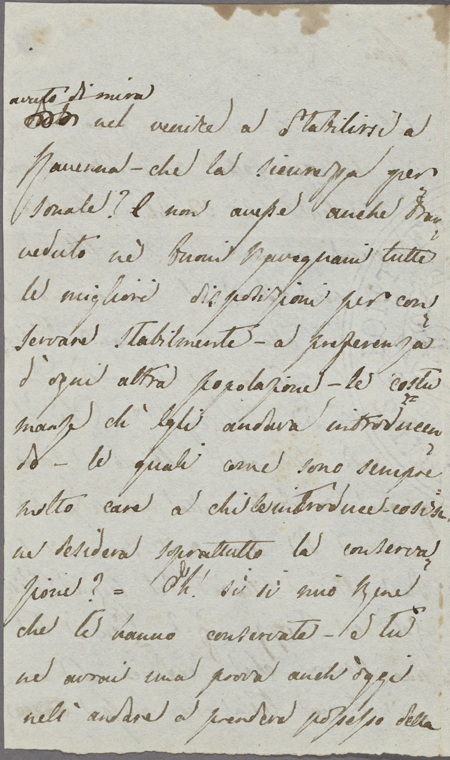 avuto di mira
nel venire a Stabilirsi a
Ravenna – che la sicurezza per=
sonale? E non avesse anche Tra=
veduto ne' buoni Ravegnani tutte
le migliori disposizioni per con=
servare stabilmente – a preferenza
d'ogni altra popolazione – le costu=
manze ch' Egli andava introducen=
do – le quali come sono sempre
molto care a chi le introduce – così si
ne desidera soprattutto la conserva=
zione? = Oh! si si mio
che ti hanno conservate – e tu
ne avrai una prova anch'oggi
nell' andare a prendere possesso della